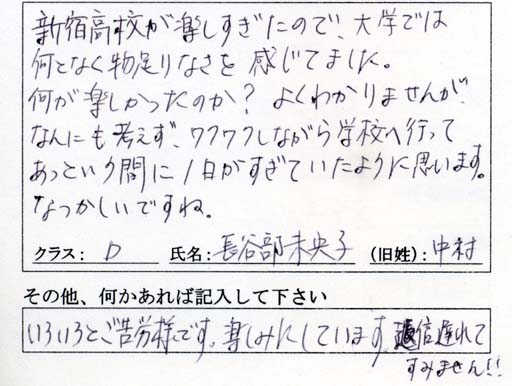 新宿高校が楽しすぎたので、大学では
何となく物足りなさを感じてました。
何が楽しかったのか？よくわかりませんが、
なんにも考えず、ワクワクしながら学校へ行って
あっという間に1日がすぎていたように思います。
なつかしいですね。
クラス： D 氏名：長谷部未央子 （旧姓）：中村
その他、何かあれば記入して下さい
いろいろとご苦労様です。楽しみにしています。返信遅れて
すみません!!